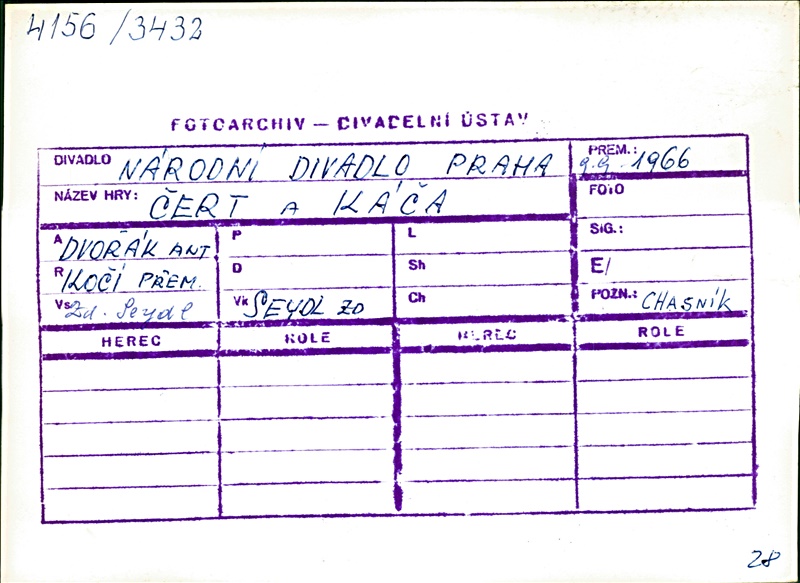 4156/3432
FOTOARCHIV — DIVADELNÍ ÚSTAV
DIVADLO NÁRODNÍ DIVADLO PRAHA PREM.: 9.9. 1966
NÁZEV HRY: ČERT A KÁČA FOTO
A DVOŘÁK ANT P L SIG.:
R KOČÍ PŘEM. D Sh E/
Vs Zd. Seydl Vk SEYDL ZD Ch POZN.: CHASNÍK
HEREC ROLE HEREC ROLE
28